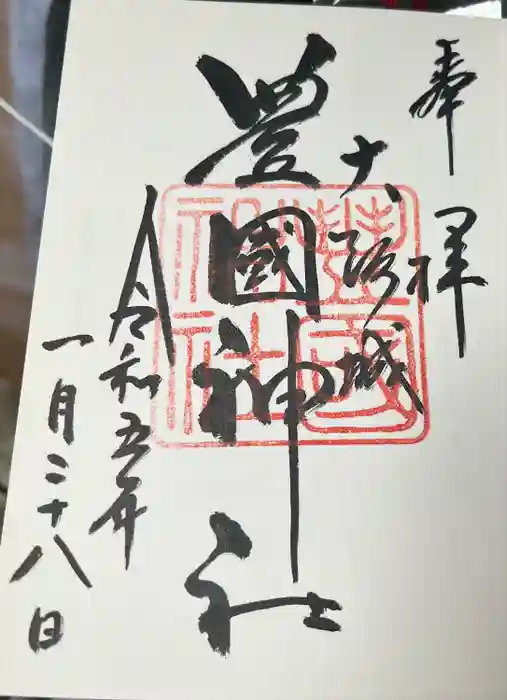 奉拝
大阪城
豊國神社
令和五年
一月二十八日
豊國
神社